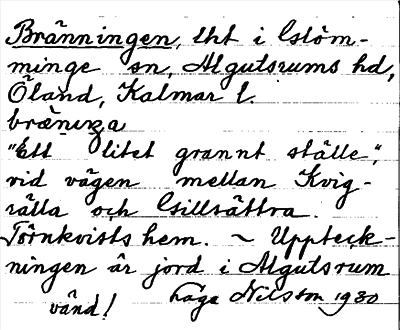 Bränningen, lht i Glöm-
minge sn, Algutsrums hd,
Öland, Kalmar l.
bræniŋa
"Ett litet grannt ställe",
vid vägen mellan Kvig-
sälla och Gillsättra.
Törnkvists hem. ~ Uppteck-
ningen är jord i Algutsrum
vänd! Nilsson 1930